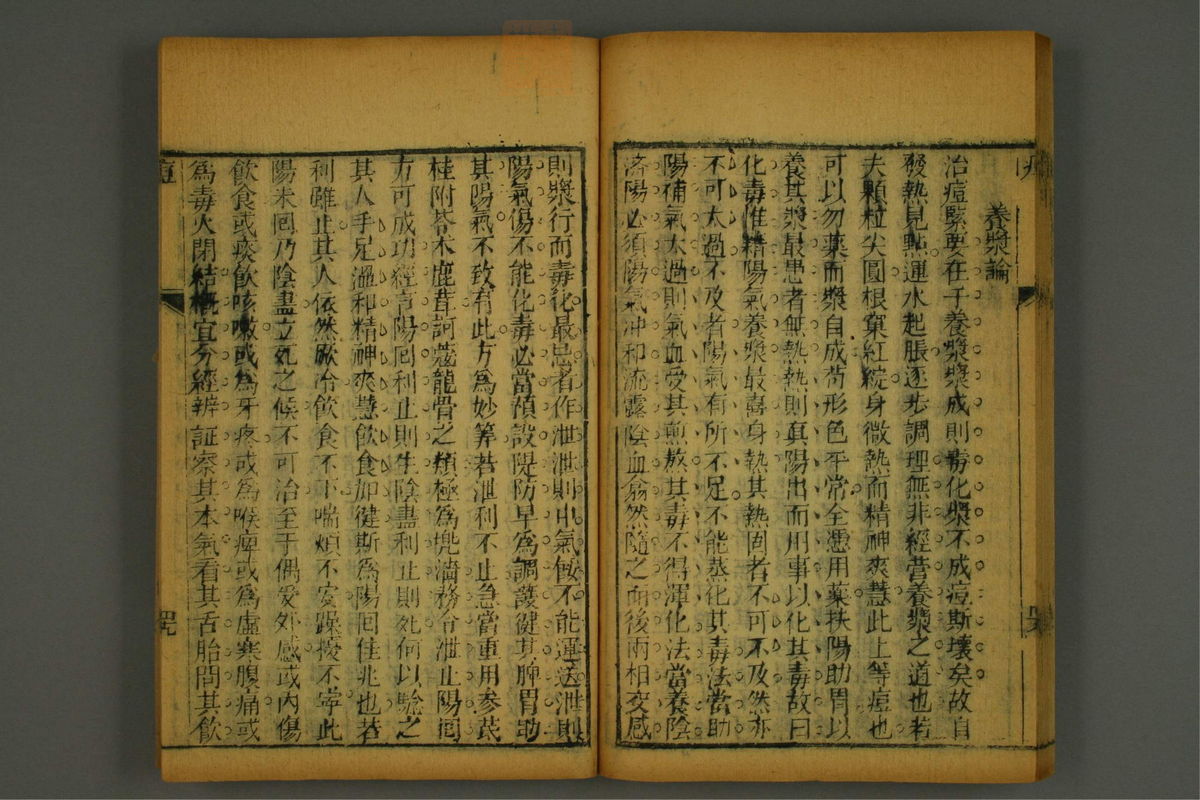 養漿論
治痘緊要在于養漿漿成則毒化漿不成痘斯壞矣故自
發熱見點運水起脹逐步調理無非經營養漿之道也若
夫顆粒尖圓根窠紅綻身微熱而精神爽慧此上等痘也
可以勿藥而漿自成苟形色平常全憑用藥扶陽助胃以
養其漿最患者無熱熱則真陽出而用事以化其毒故曰
化毒惟精陽氣養漿最喜身熱其熱固者不可不及然亦
不可太過不及者陽氣有所不足不能蒸化其毒法當助
陽補氣太過則氣血受其煎熬其毒不得渾化法當養陰
濟陽必須陽氣冲和流露陰血翕然隨之而後兩相交感
則漿行而毒化最忌者作泄泄則中氣餒不能運送泄則
陽氣傷不能化毒必當預設隄防早為調護健其脾胃助
其陽氣不致有此方為妙筭若泄利不止急當重用參芪
桂附苓朮鹿茸訶蔻龍骨之類極為兜濇務令泄止陽囘
方可成功經言陽囘利止則生陰盡利止則死何以驗之
其人手足溫和精神爽慧飲食加健斯為陽囘佳兆也若
利雖止其人依然厥冷飲食不下喘煩不安躁擾不寧此
陽未囘乃陰盡立死之候不可治至于偶受外感或內傷
飲食或痰飲咳嗽或為牙疼或為喉痺或為虛寒腹痛或
為毒火閉結概宜分經辨証察其本氣看其舌胎問其飲